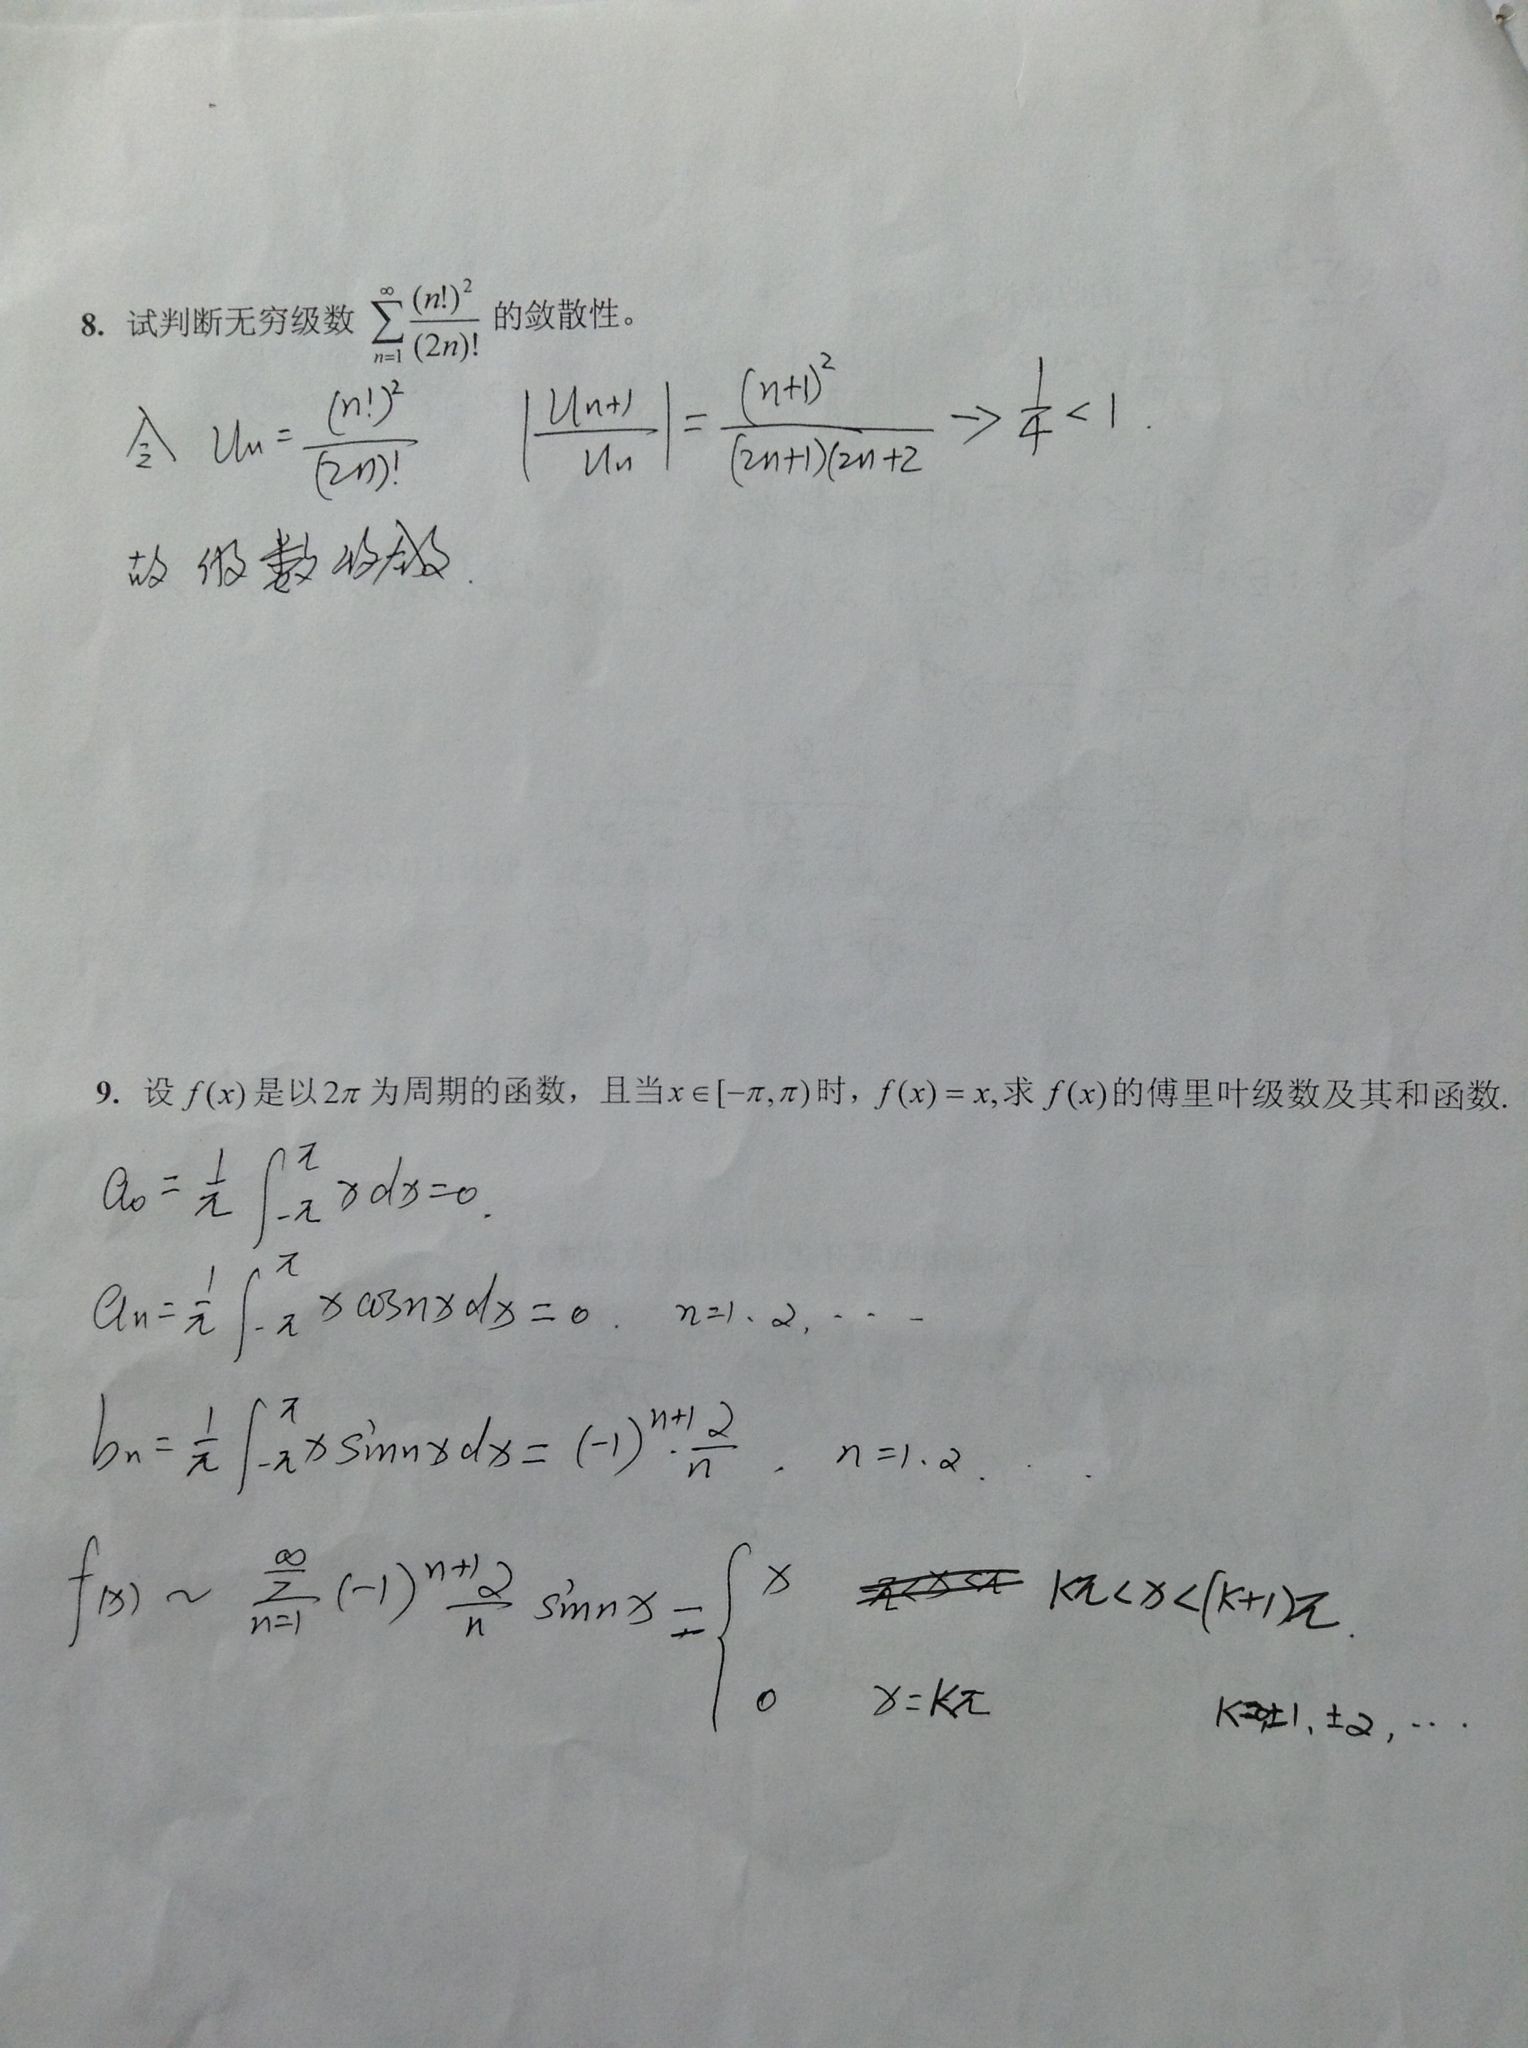 8. 试判断无穷级数 ∑_{n=1}^{∞} (n!)²/(2n)! 的敛散性。
令 Un = (n!)²/(2n)! |Un+1/Un| = (n+1)²/(2n+1)(2n+2 → 1/4 < 1.
故级数收敛.
9. 设 f(x) 是以 2π 为周期的函数，且当 x∈[−π,π) 时，f(x) = x, 求 f(x) 的傅里叶级数及其和函数.
a₀ = 1/π ∫_{-π}^{π} x dx = 0.
an = 1/π ∫_{-π}^{π} x cosnx dx = 0. n=1. 2, ...
bn = 1/π ∫_{-π}^{π} x sinnx dx = (-1)^{n+1} · 2/n . n=1. 2. ...
f(x) ~ ∑_{n=1}^{∞} (-1)^{n+1} 2/n sinnx = { x kπ<x<(k+1)π.
0 x=kπ ±1, ±2, ...